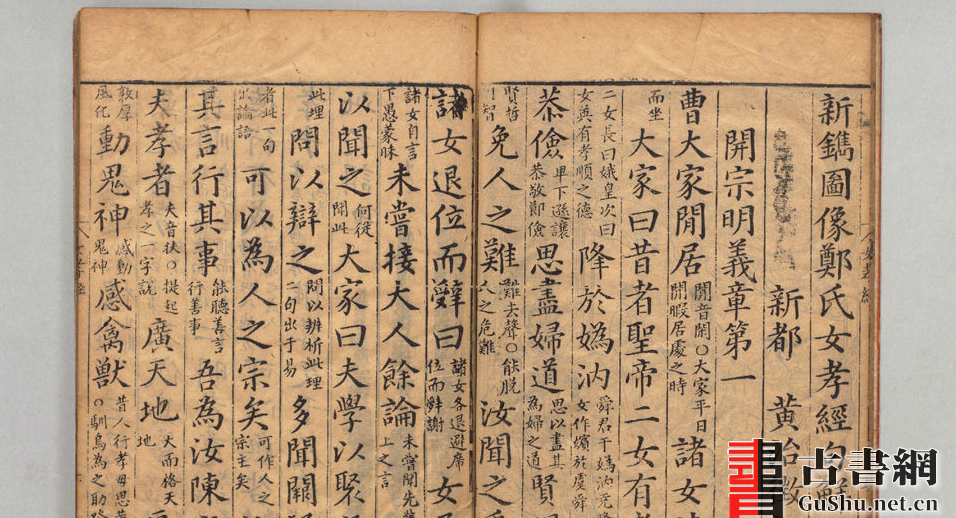 新鐫圖像鄭氏女孝經句解
新都 黃治徵
開宗明義章第一
曹大家閒居 閒音閑○大家平日閒暇居處之時 諸女
而坐 大家曰昔者聖帝二女有
二女長曰娥皇次曰
女英有孝順之德 降於媯汭 舜君于媯汭堯
女作嬪於虞舜
恭儉 卑下遜讓恭敬節儉 思盡婦道 思以盡其為婦之道 賢
賢哲
智 免人之難 難去聲○能脫人之危難 汝聞之
諸女退位而辭曰 諸女各退避席位而辭謝
諸女自言
下愚蒙昧 未嘗接大人餘論 未嘗聞先
上之言
以聞之 何從聞此 大家曰夫學以聚
此理 問以辯之 問以辨析此理二句出于易 多聞闕
者此一句
出論語 可以為人之宗矣 可作人之宗主矣
其言行其事 能聽善言行善事 吾為汝陳
夫孝者 夫音扶○提起孝之一字說 廣天地 大而格天
地
敦厚
風化 動鬼神 感動鬼神 感禽獸 昔人行孝毋思
○馴鳥為之助
女孝經
古書網
GuShu.net.cn